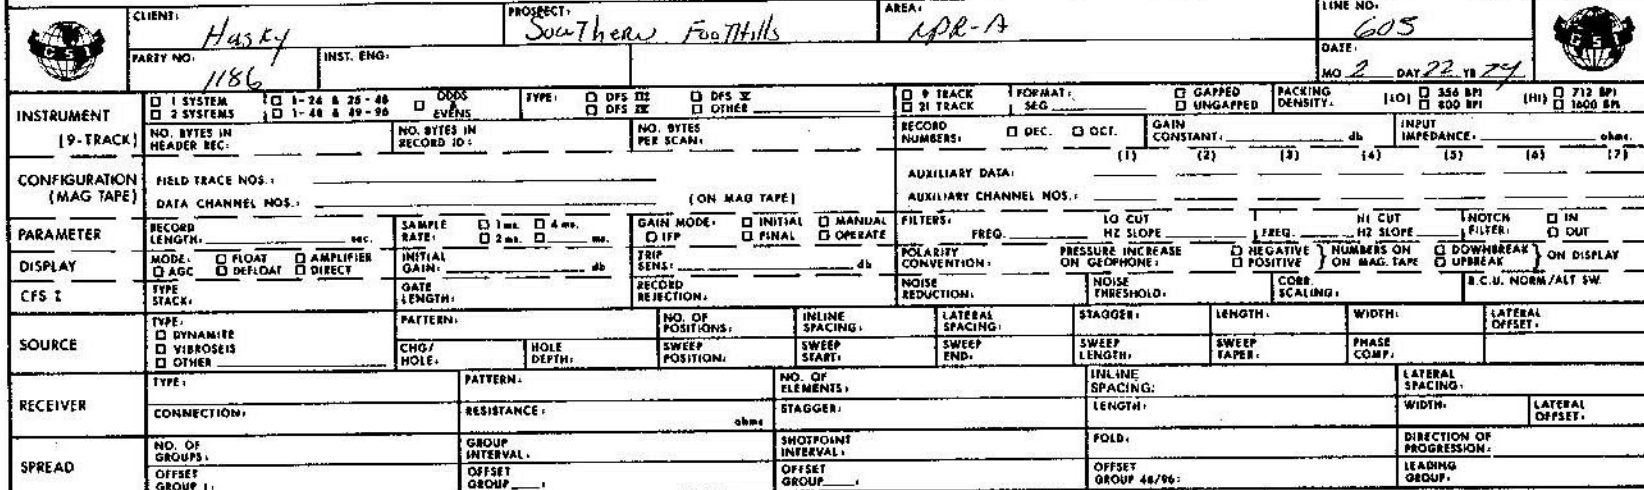 CLIENT: Husky PROSPECT: Southern Foothills AREA: NPR-A LINE NO: 605
GSI GSI
PARTY NO: 1186 INST. ENG: DATE: MO 2 DAY 22 YR 79
INSTRUMENT [9-TRACK]
☐ 1 SYSTEM ☐ 1-24 & 25-48 ☐ ODDS & EVENS TYPE: ☐ DFS III ☐ DFS V ☐ 9 TRACK FORMAT: SEG ☐ GAPPED PACKING DENSITY: [LO] ☐ 356 BPI [HI] ☐ 712 BPI
☐ 2 SYSTEMS ☐ 1-48 & 49-96 ☐ DFS IV ☐ OTHER ☐ 21 TRACK ☐ UNGAPPED ☐ 800 BPI ☐ 1600 BPI
NO. BYTES IN HEADER REC: NO. BYTES IN RECORD ID: NO. BYTES PER SCAN: RECORD NUMBERS: ☐ DEC. ☐ OCT. GAIN CONSTANT: db INPUT IMPEDANCE: ohms.
CONFIGURATION (MAG TAPE)
(1) (2) (3) (4) (5) (6) (7)
FIELD TRACE NOS.: AUXILIARY DATA:
DATA CHANNEL NOS.: (ON MAG TAPE) AUXILIARY CHANNEL NOS.:
PARAMETER
RECORD LENGTH: sec. SAMPLE RATE: ☐ 1 ms. ☐ 4 ms. ☐ 2 ms. ☐ ms. GAIN MODE: ☐ INITIAL ☐ MANUAL ☐ IFP ☐ FINAL ☐ OPERATE FILTERS: FREQ. LO CUT HZ SLOPE FREQ. HI CUT HZ SLOPE NOTCH FILTER: ☐ IN ☐ OUT
DISPLAY
MODE: ☐ FLOAT ☐ AMPLIFIER ☐ AGC ☐ DEFLOAT ☐ DIRECT INITIAL GAIN: db TRIP SENS: db POLARITY CONVENTION: PRESSURE INCREASE ON GEOPHONE: ☐ NEGATIVE ☐ POSITIVE } NUMBERS ON ON MAG. TAPE ☐ DOWNBREAK ☐ UPBREAK } ON DISPLAY
CFS I
TYPE STACK: GATE LENGTH: RECORD REJECTION: NOISE REDUCTION: NOISE THRESHOLD: CORR. SCALING: B.C.U. NORM/ALT SW.
SOURCE
TYPE: ☐ DYNAMITE ☐ VIBROSEIS ☐ OTHER
PATTERN: NO. OF POSITIONS: INLINE SPACING: LATERAL SPACING: STAGGER: LENGTH: WIDTH: LATERAL OFFSET:
CHG/HOLE: HOLE DEPTH: SWEEP POSITION: SWEEP START: SWEEP END: SWEEP LENGTH: SWEEP TAPER: PHASE COMP:
RECEIVER
TYPE: PATTERN: NO. OF ELEMENTS: INLINE SPACING: LATERAL SPACING:
CONNECTION: RESISTANCE: ohms STAGGER: LENGTH: WIDTH: LATERAL OFFSET:
SPREAD
NO. OF GROUPS: GROUP INTERVAL: SHOTPOINT INTERVAL: FOLD: DIRECTION OF PROGRESSION:
OFFSET GROUP 1: OFFSET GROUP ___: OFFSET GROUP ___: OFFSET GROUP 48/96: LEADING GROUP: